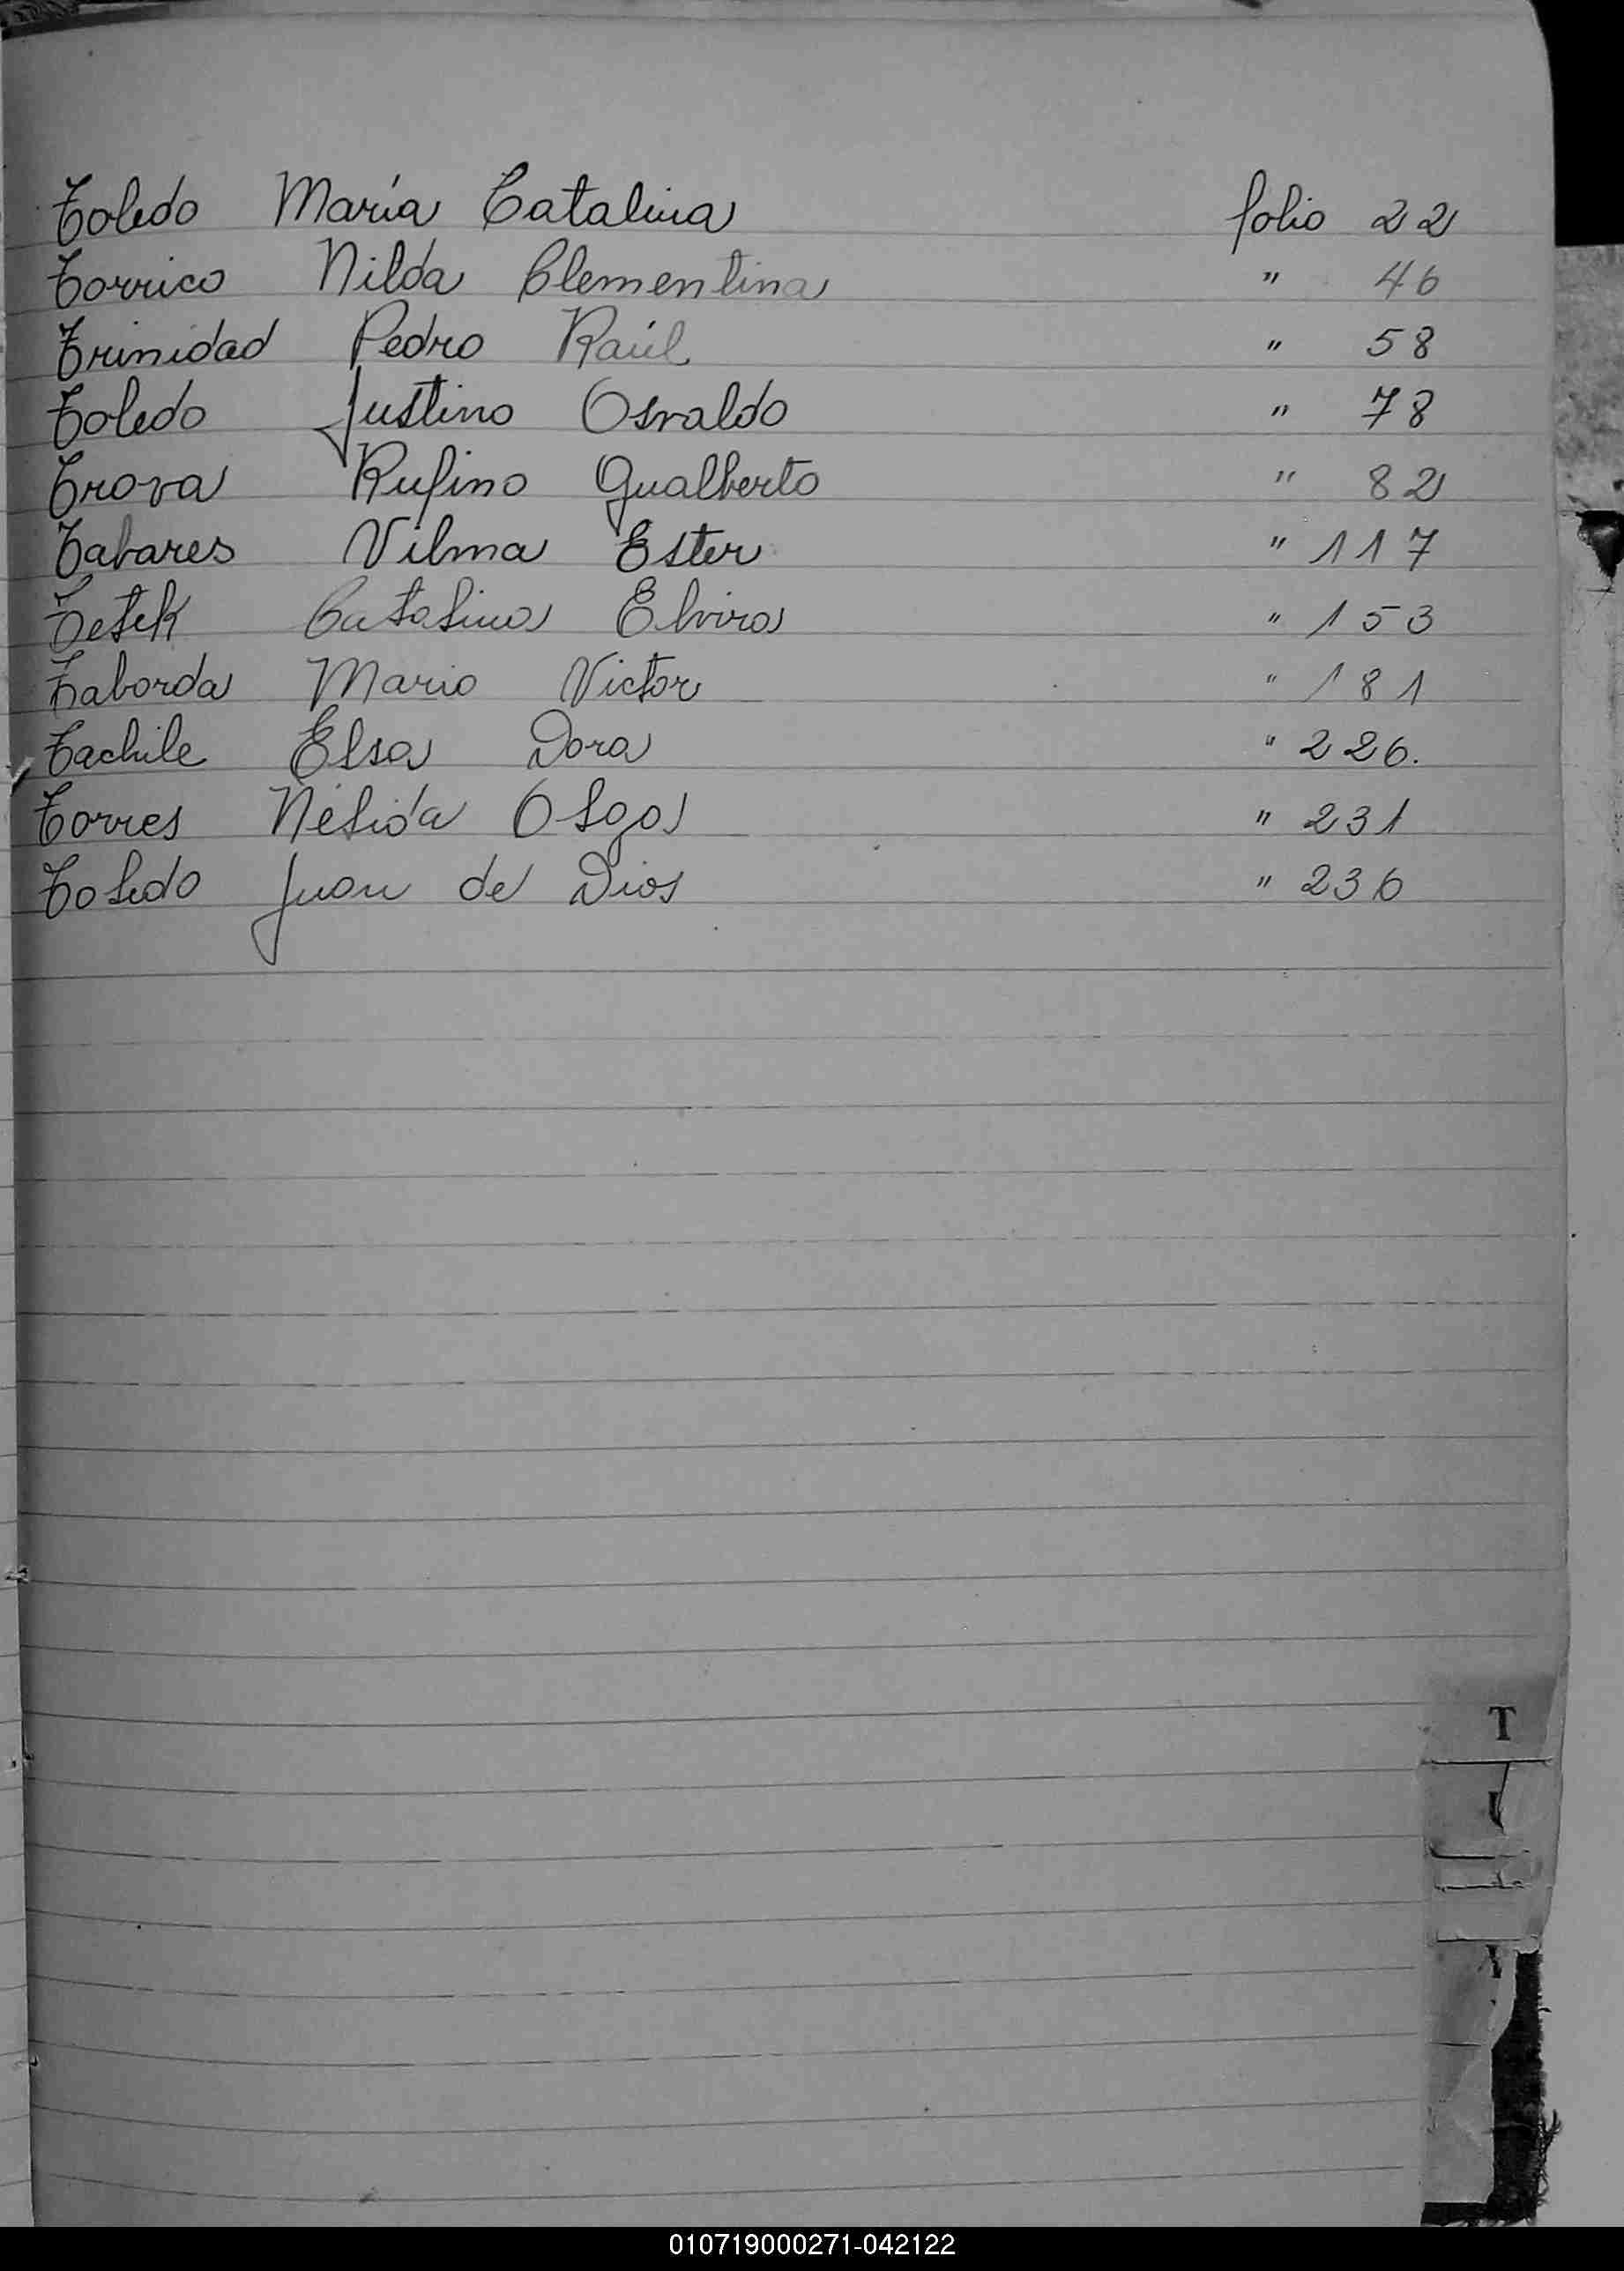 Toledo María Catalina folio 22
Torrico Nilda Clementina " 46
Trinidad Pedro Raúl " 58
Toledo Justino Osvaldo " 78
Trova Rufino Gualberto " 82
Tabares Vilma Ester " 117
Tetek Catalina Elvira " 153
Taborda Mario Victor " 181
Tachile Elsa Dora " 226.
Torres Nélida Olga " 231
Toledo Juan de Dios " 236
T
010719000271-042122